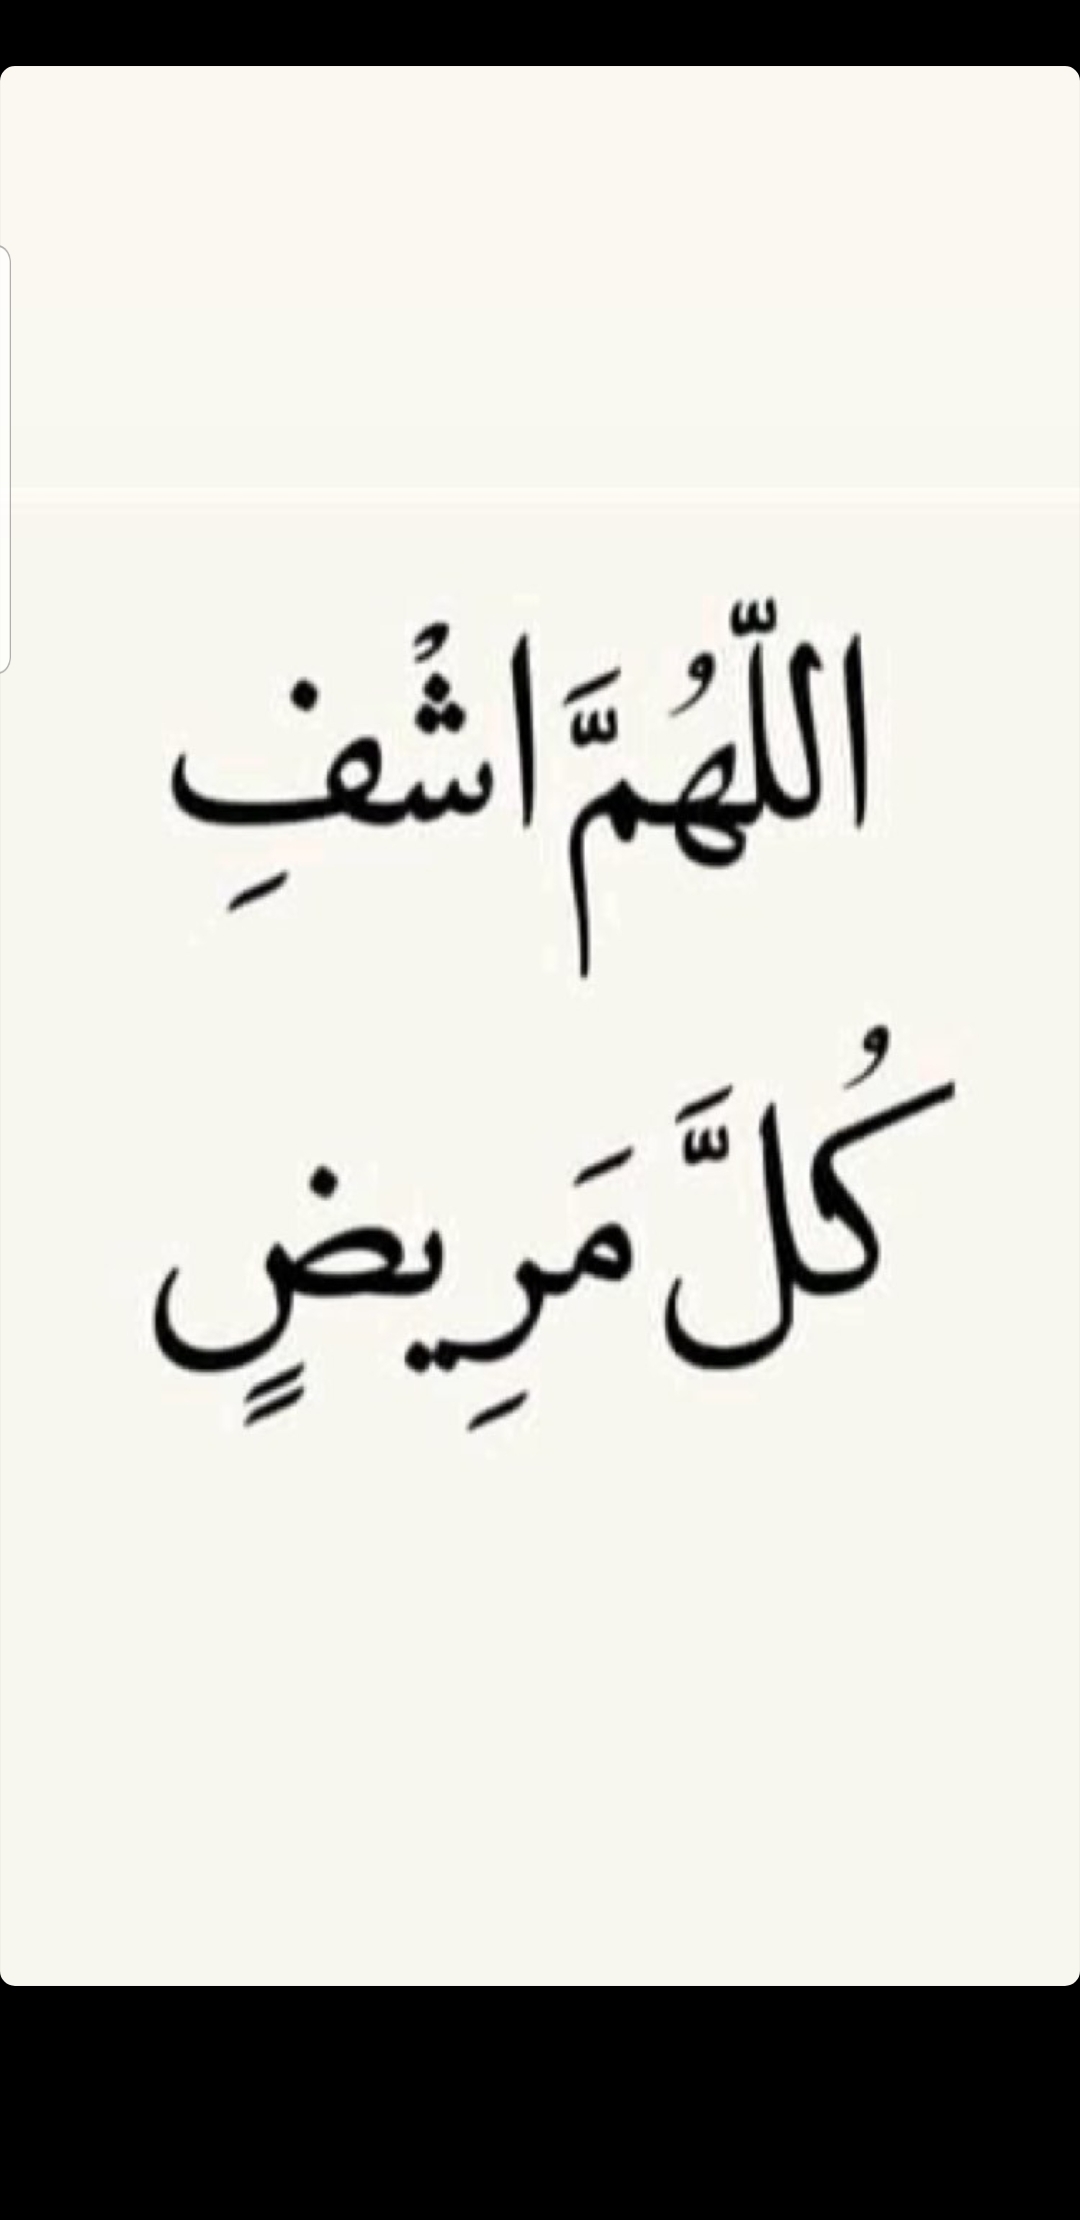 اللّهُمَّ اشْفِ
كُلَّ مَرِيضٍ